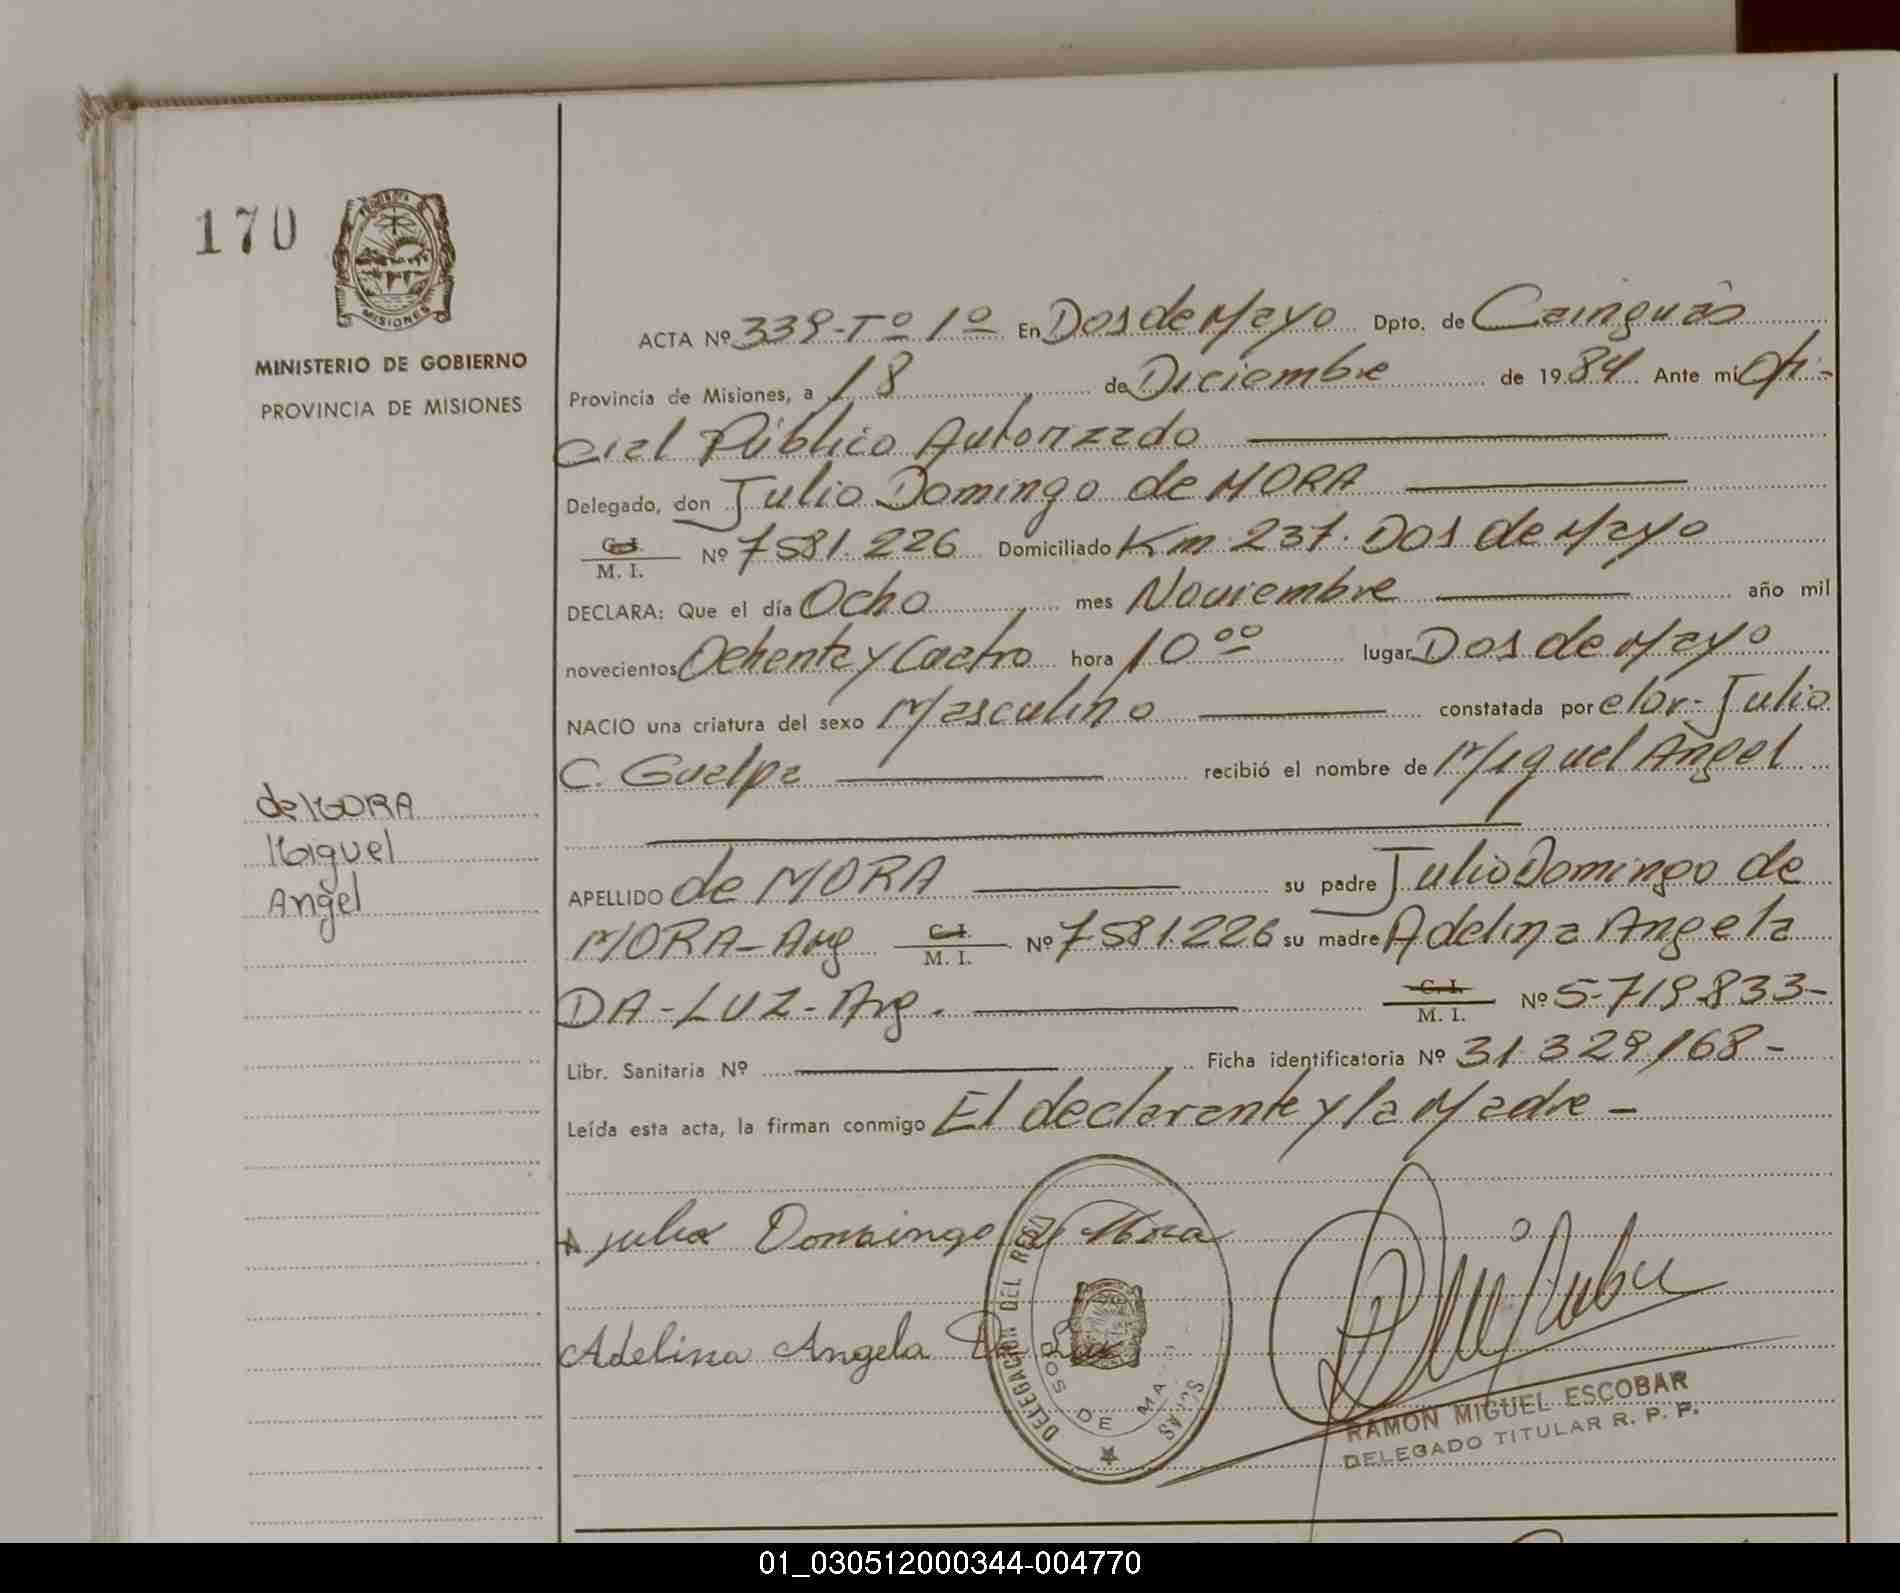 170
MISIONES
MINISTERIO DE GOBIERNO
PROVINCIA DE MISIONES
de MORA
Miguel
Angel
ACTA Nº 339-Tº 1º En Dos de Mayo Dpto. de Cainguás
Provincia de Misiones, a 18 de Diciembre de 1984 Ante mí Ofi-
cial Público Autorizado
Delegado, don Julio Domingo de MORA
C. I.
M. I. Nº 7581.226 Domiciliado Km 237. Dos de Mayo
DECLARA: Que el día Ocho mes Noviembre año mil
novecientos Ochenta y Cuatro hora 10ºº lugar Dos de Mayo
NACIO una criatura del sexo Masculino constatada por el Dr. Julio
C. Guelpa recibió el nombre de Miguel Angel
APELLIDO de MORA su padre Julio Domingo de
MORA-Arg C. I.
M. I. Nº 7581.226 su madre Adelina Angela
DA-LUZ-Arg. C. I.
M. I. Nº 5.719.833-
Libr. Sanitaria Nº Ficha identificatoria Nº 31.329.168-
Leída esta acta, la firman conmigo El declarante y la Madre-
Julio Domingo de Mora
Adelina Angela Da Luz
DELEGACION DEL REG
DOS DE MAYO
RAMON MIGUEL ESCOBAR
DELEGADO TITULAR R. P. P.
01_030512000344-004770